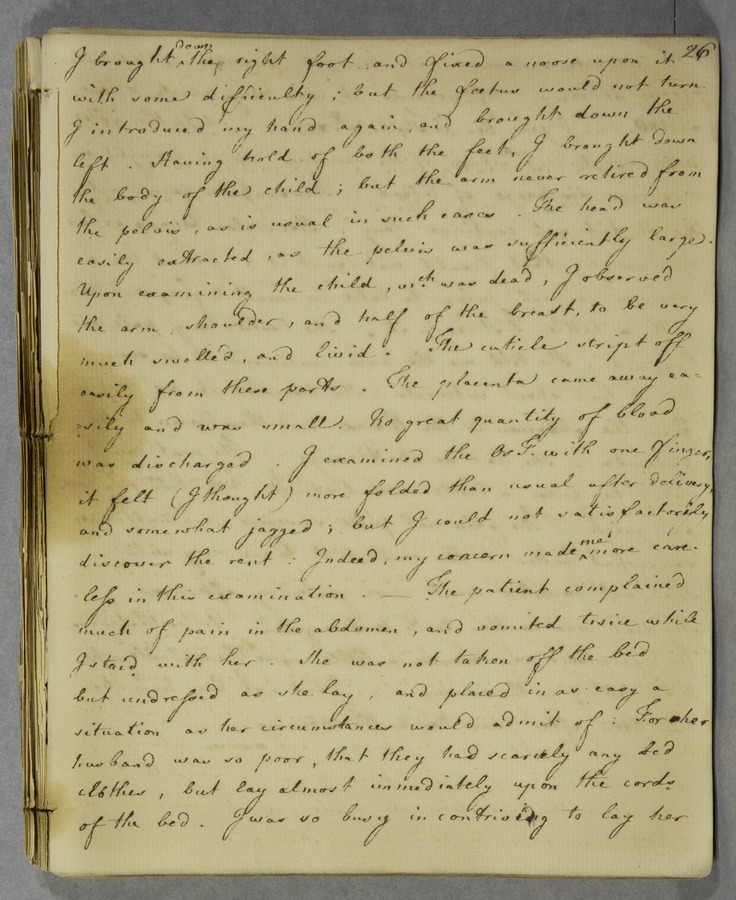 26
I brought down the right foot and fixed a noose upon it
with some difficulty ; but the foetus would not turn.
I introduced my hand again, and brought down the
left . Having hold of both the feet, I brought down
the body of the child ; but the arm never retired from
the pelvis , as is usual in such cases . The head was
easily extracted , as the pelvis was sufficiently large .
Upon examining the child , wch was dead , I observed
the arm , shoulder , and half of the breast , to be very
much swelled , and livid . The cuticle stript off
easily from these parts . The placenta came away ea=
=sily and was small . No great quantity of blood
was discharged . I examined the Os T. with one finger,
it felt ( I thought ) more folded than usual after delivery,
and somewhat jagged ; but I could not satisfactorily
discover the rent : Indeed , my concern made me more care-
-less in this examination . — The patient complained
much of pain in the abdomen , and vomited twice while
I staid with her . She was not taken off the bed
but undressed as she lay , and placed in as easy a
situation as her circumstances would admit of : For her
husband was so poor , that they had scarcely any bed
clothes , but lay almost immediately upon the cords
of the bed . I was so busy in contriving to lay her